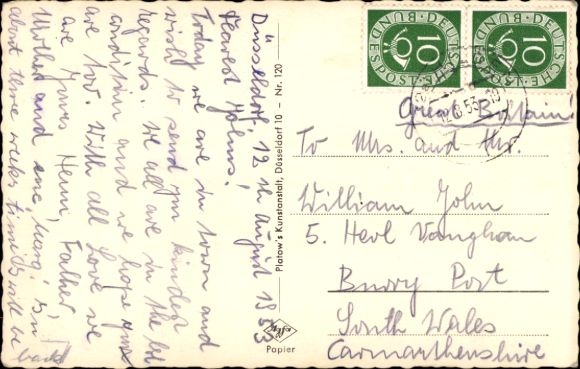 Düsseldorf, 12th August 1953
Dearest Johns!
Today we are in town and
wish to send you kindest
regards. We all are in the best
condition and we hope you
are too. With all Love we
are Yours Henn, Father
Mother and
about three weeks time will be
back
Platow's Kunstanstalt, Düsseldorf 10 - Nr. 120
Agfa
Papier
DEUTSCHE BUNDESPOST
10
DEUTSCHE BUNDESPOST
10
53
Great Britain!
To Mrs. and Mr.
William John
5. Heol Vaughan
Burry Port
South Wales
Carmarthenshire